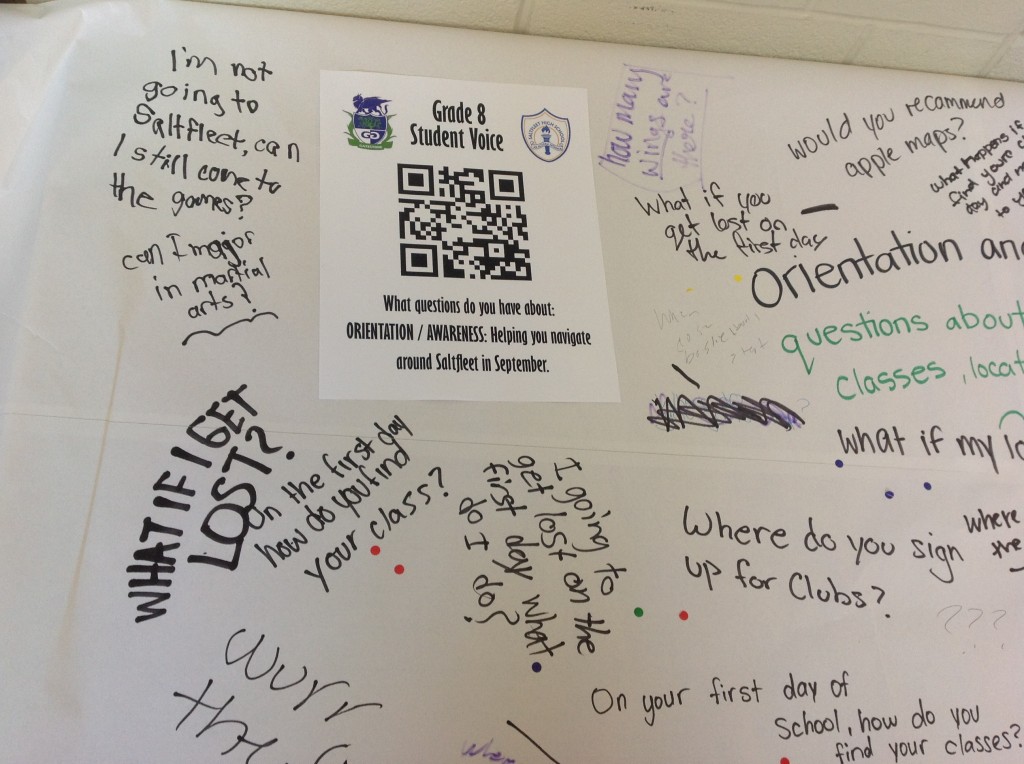 I'm not
going to
Saltfleet, can
I still come to
the games?
can I major
in martial
arts?
Grade 8
Student Voice
What questions do you have about:
ORIENTATION / AWARENESS: Helping you navigate
around Saltfleet in September.
how many
wings are
there?
would you recommend
apple maps?
what happens if
find your
day and
to
What if you
get lost on
the first day
Orientation an
questions about
classes, locat
what if my lo
WHAT IF I GET
LOST?
On the first day
how do you find
your class?
I going to
get lost on the
first day what
do I do?
Where do you sign
up for Clubs?
where
the
???
On your first day of
school, how do you
find your classes?
wurr